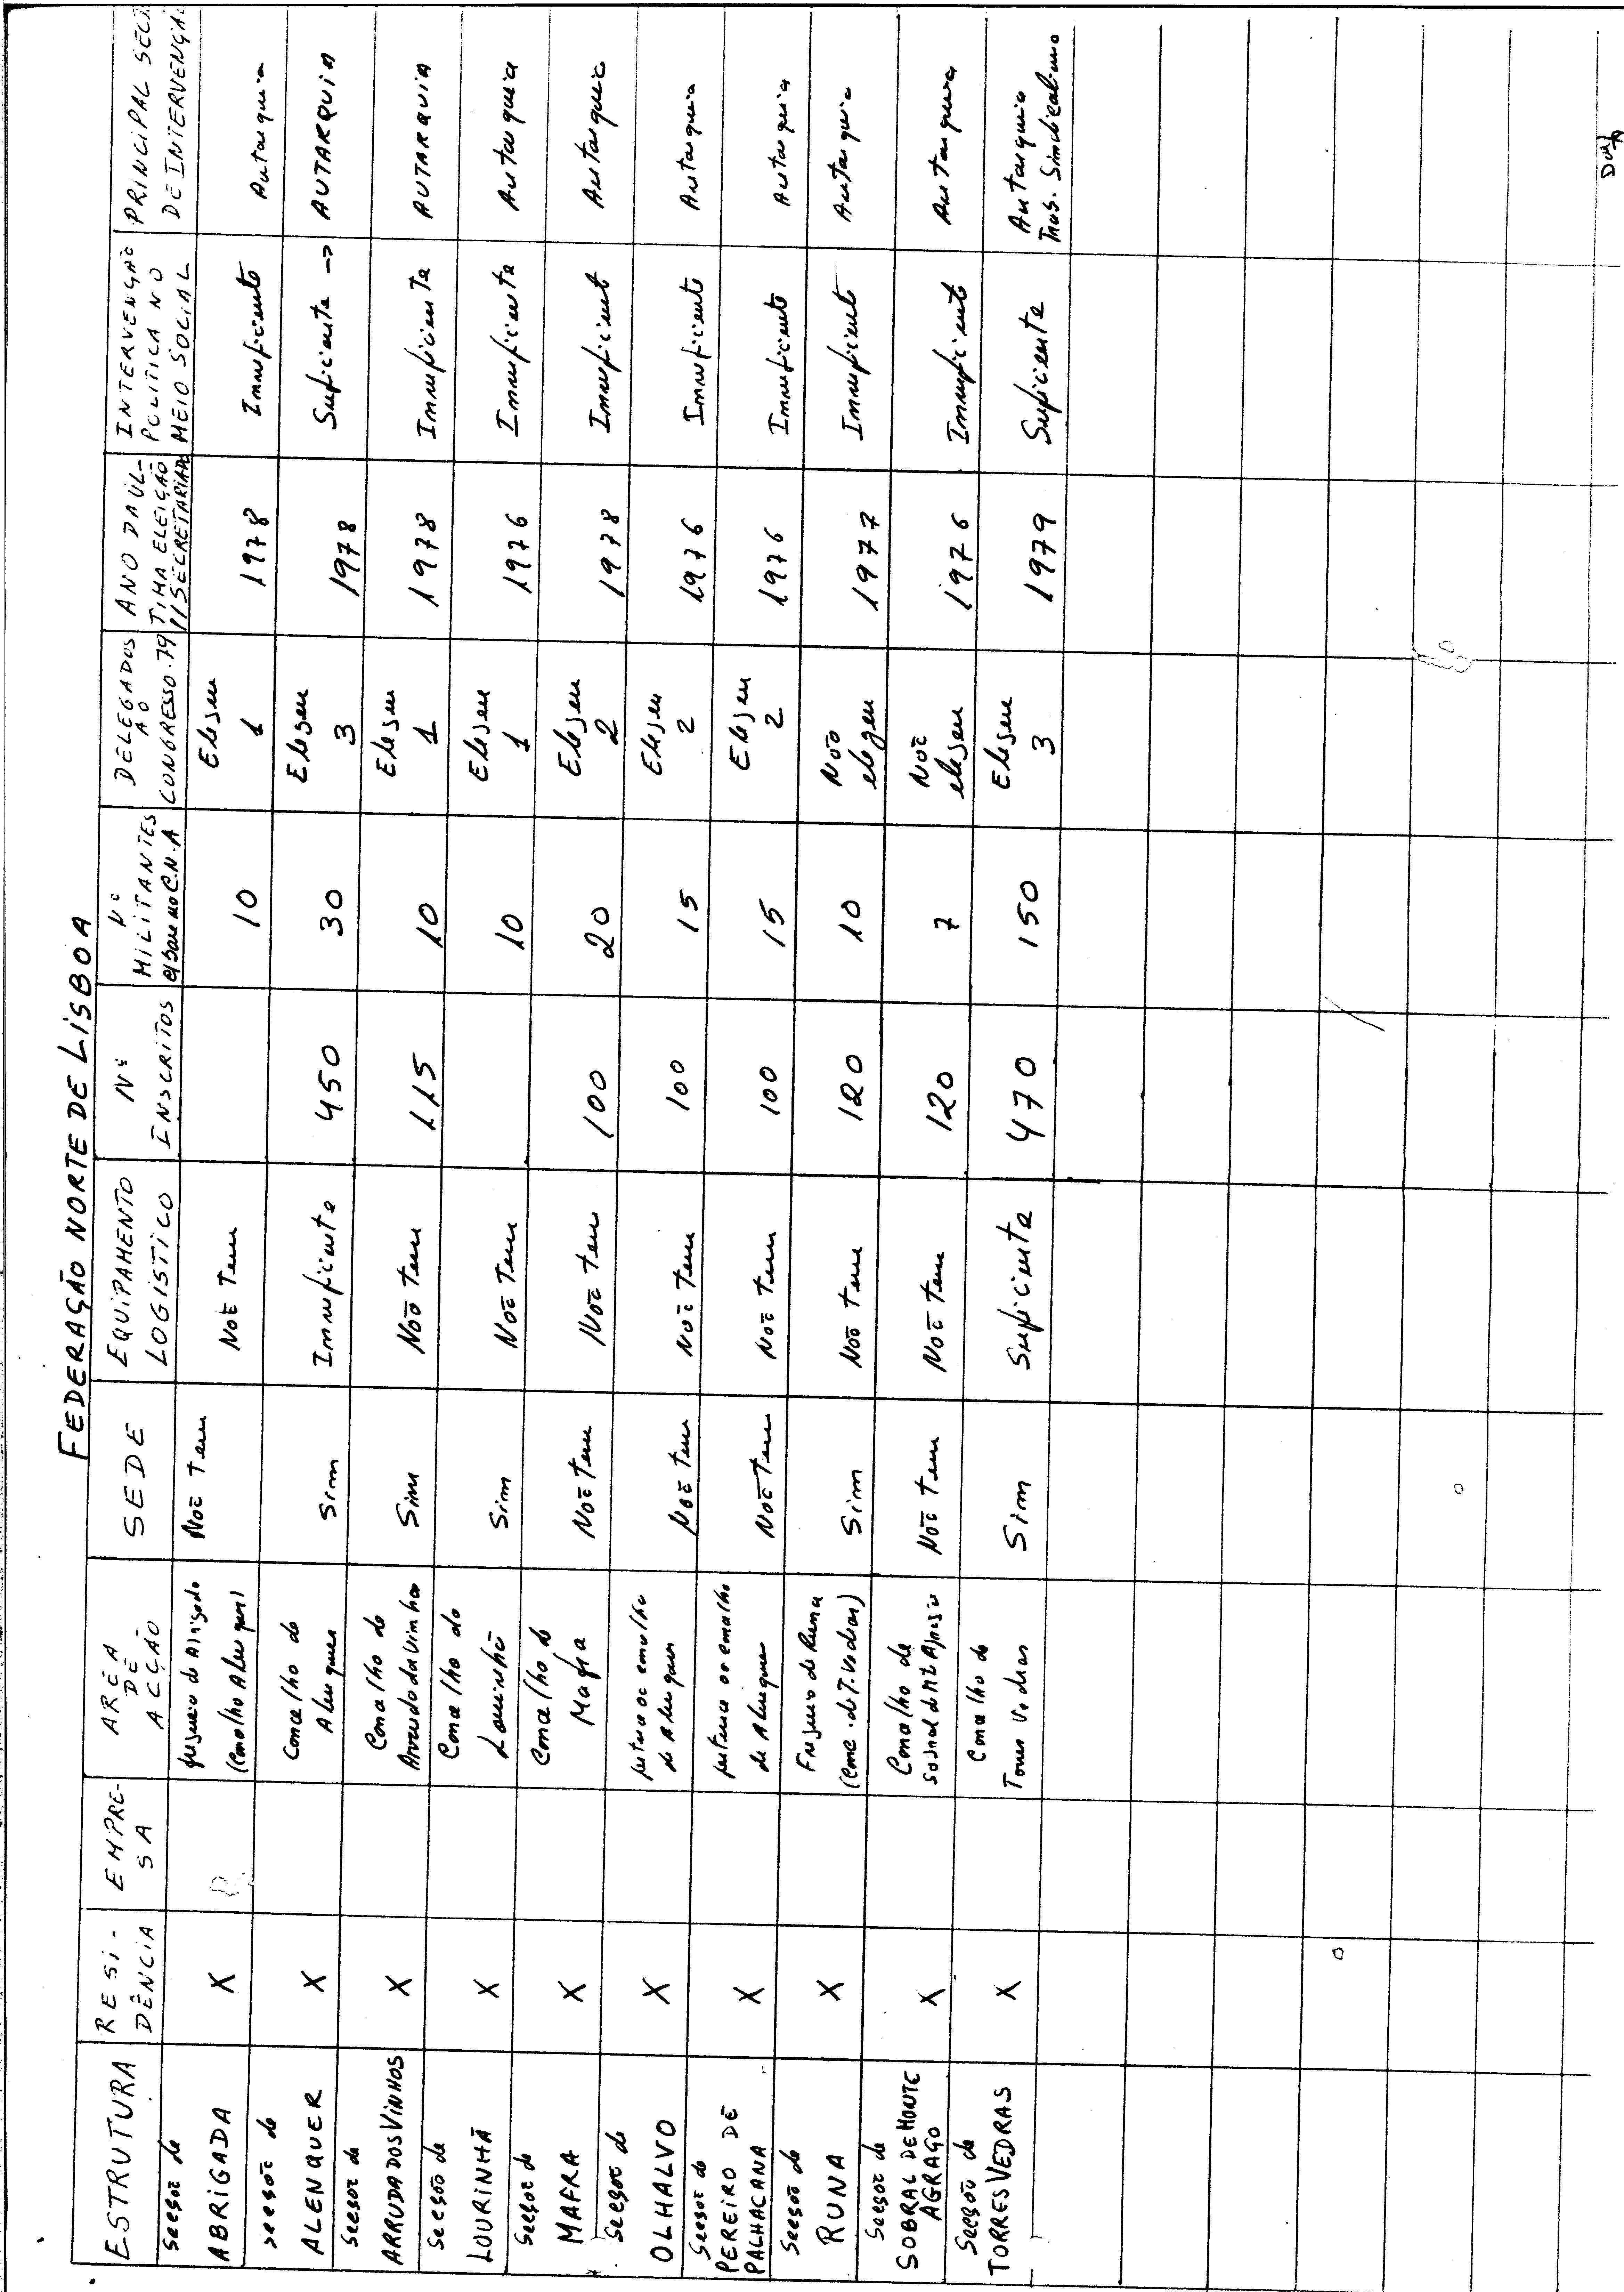 FEDERAÇÃO NORTE DE LISBOA
ESTRUTURA
RESI-
DÊNCIA
EMPRE-
SA
AREA
DE
ACÇÃO
SEDE
EQUIPAMENTO
LOGISTICO
Nº
INSCRITOS
Nº
MILITANTES
CONGRESSO.79
DELEGADOS
AO
ANO DA UL-
TIMA ELEIÇÃO
P/SECRETARIADO
INTERVENÇÃO
POLITICA NO
MEIO SOCIAL
PRINCIPAL SECT
DE INTERVENÇÃO
Secção de
ABRIGADA
X
(Concelho Alenquer)
Não Tem
Não Tem
10
Elegeu
1
1978
Insuficiente
Autarquia
Secção de
ALENQUER
X
Concelho de
Alenquer
Sim
Insuficiente
450
30
Elegeu
3
1978
Suficiente ->
AUTARQUIA
Secção de
ARRUDA DOS VINHOS
X
Concelho de
Arruda dos Vinhos
Sim
Não tem
115
10
Elegeu
1
1978
Insuficiente
AUTARQUIA
Secção de
LOURINHÃ
X
Concelho da
Lourinhã
Sim
Não Tem
10
Elegeu
1
1976
Insuficiente
Autarquia
Secção de
MAFRA
X
Concelho de
Mafra
Não tem
Não tem
100
20
Elegeu
2
1978
Insuficient
Autarquia
Secção de
OLHALVO
X
de Alenquer
Não tem
Não tem
100
15
Elegeu
2
1976
Insuficiente
Autarquia
Secção de
PEREIRO DE
PALHACANA
X
de Alenquer
Não Tem
Não tem
100
15
Elegeu
2
1976
Insuficiente
Autarquia
Secção de
RUNA
X
Freguesia de Runa
(Conc. de T. Vedras)
Sim
Não tem
120
10
Não
elegeu
1977
Insuficient
Autarquia
Secção de
SOBRAL DE MONTE
AGRAÇO
X
Concelho de
Sobral de Mte Agraço
Não tem
Não tem
120
7
Não
elegeu
1976
Insuficient
Autarquia
Secção de
TORRES VEDRAS
X
Concelho de
Torres Vedras
Sim
Suficiente
470
150
Elegeu
3
1979
Suficiente
Autarquia
Sindicalismo